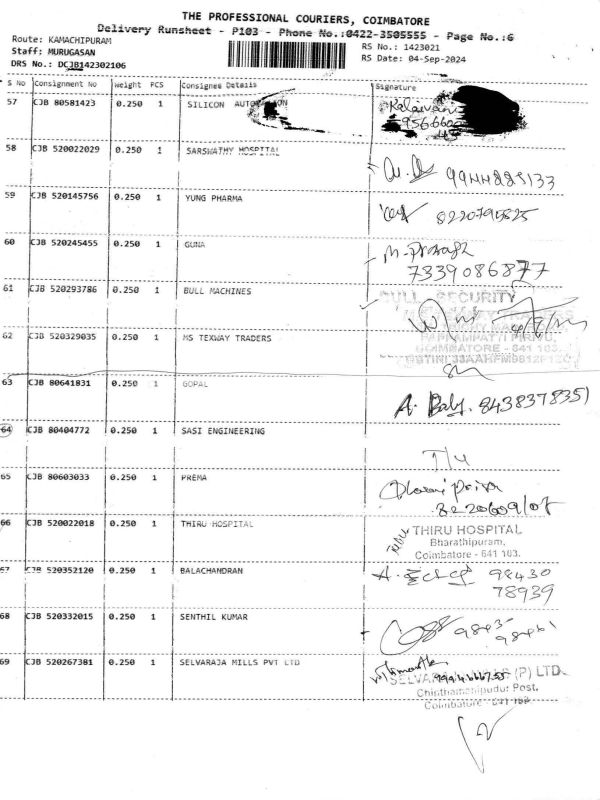 THE PROFESSIONAL COURIERS, COIMBATORE
Delivery Runsheet - P103 - Phone No.:0422-3505555 - Page No.:6
Route: KAMACHIPURAM
Staff: MURUGASAN
DRS No.: DCJB142302106
RS No.: 1423021
RS Date: 04-Sep-2024
S No Consignment No weight PCS Consignee Details Signature
57 CJB 80581423 0.250 1 SILICON
58 CJB 520022029 0.250 1 SARSWATHY HOSPITAL
9944225133
59 CJB 520145756 0.250 1 YUNG PHARMA
8220790825
60 CJB 520245455 0.250 1 GUNA
7339086877
61 CJB 520293786 0.250 1 BULL MACHINES
BULL SECURITY
62 CJB 520329035 0.250 1 MS TEXWAY TRADERS
COIMBATORE - 641 103.
63 CJB 80641831 0.250 1 GOPAL
A. Baby. 8438378351
64 CJB 80404772 0.250 1 SASI ENGINEERING
65 CJB 80603033 0.250 1 PREMA
66 CJB 520022018 0.250 1 THIRU HOSPITAL
THIRU HOSPITAL
Bharathipuram,
Coimbatore - 641 103.
67 CJB 520352120 0.250 1 BALACHANDRAN
98430
78939
68 CJB 520332015 0.250 1 SENTHIL KUMAR
69 CJB 520267381 0.250 1 SELVARAJA MILLS PVT LTD
(P) LTD.
Chinthamanipudur Post,
Coimbatore - 641 103